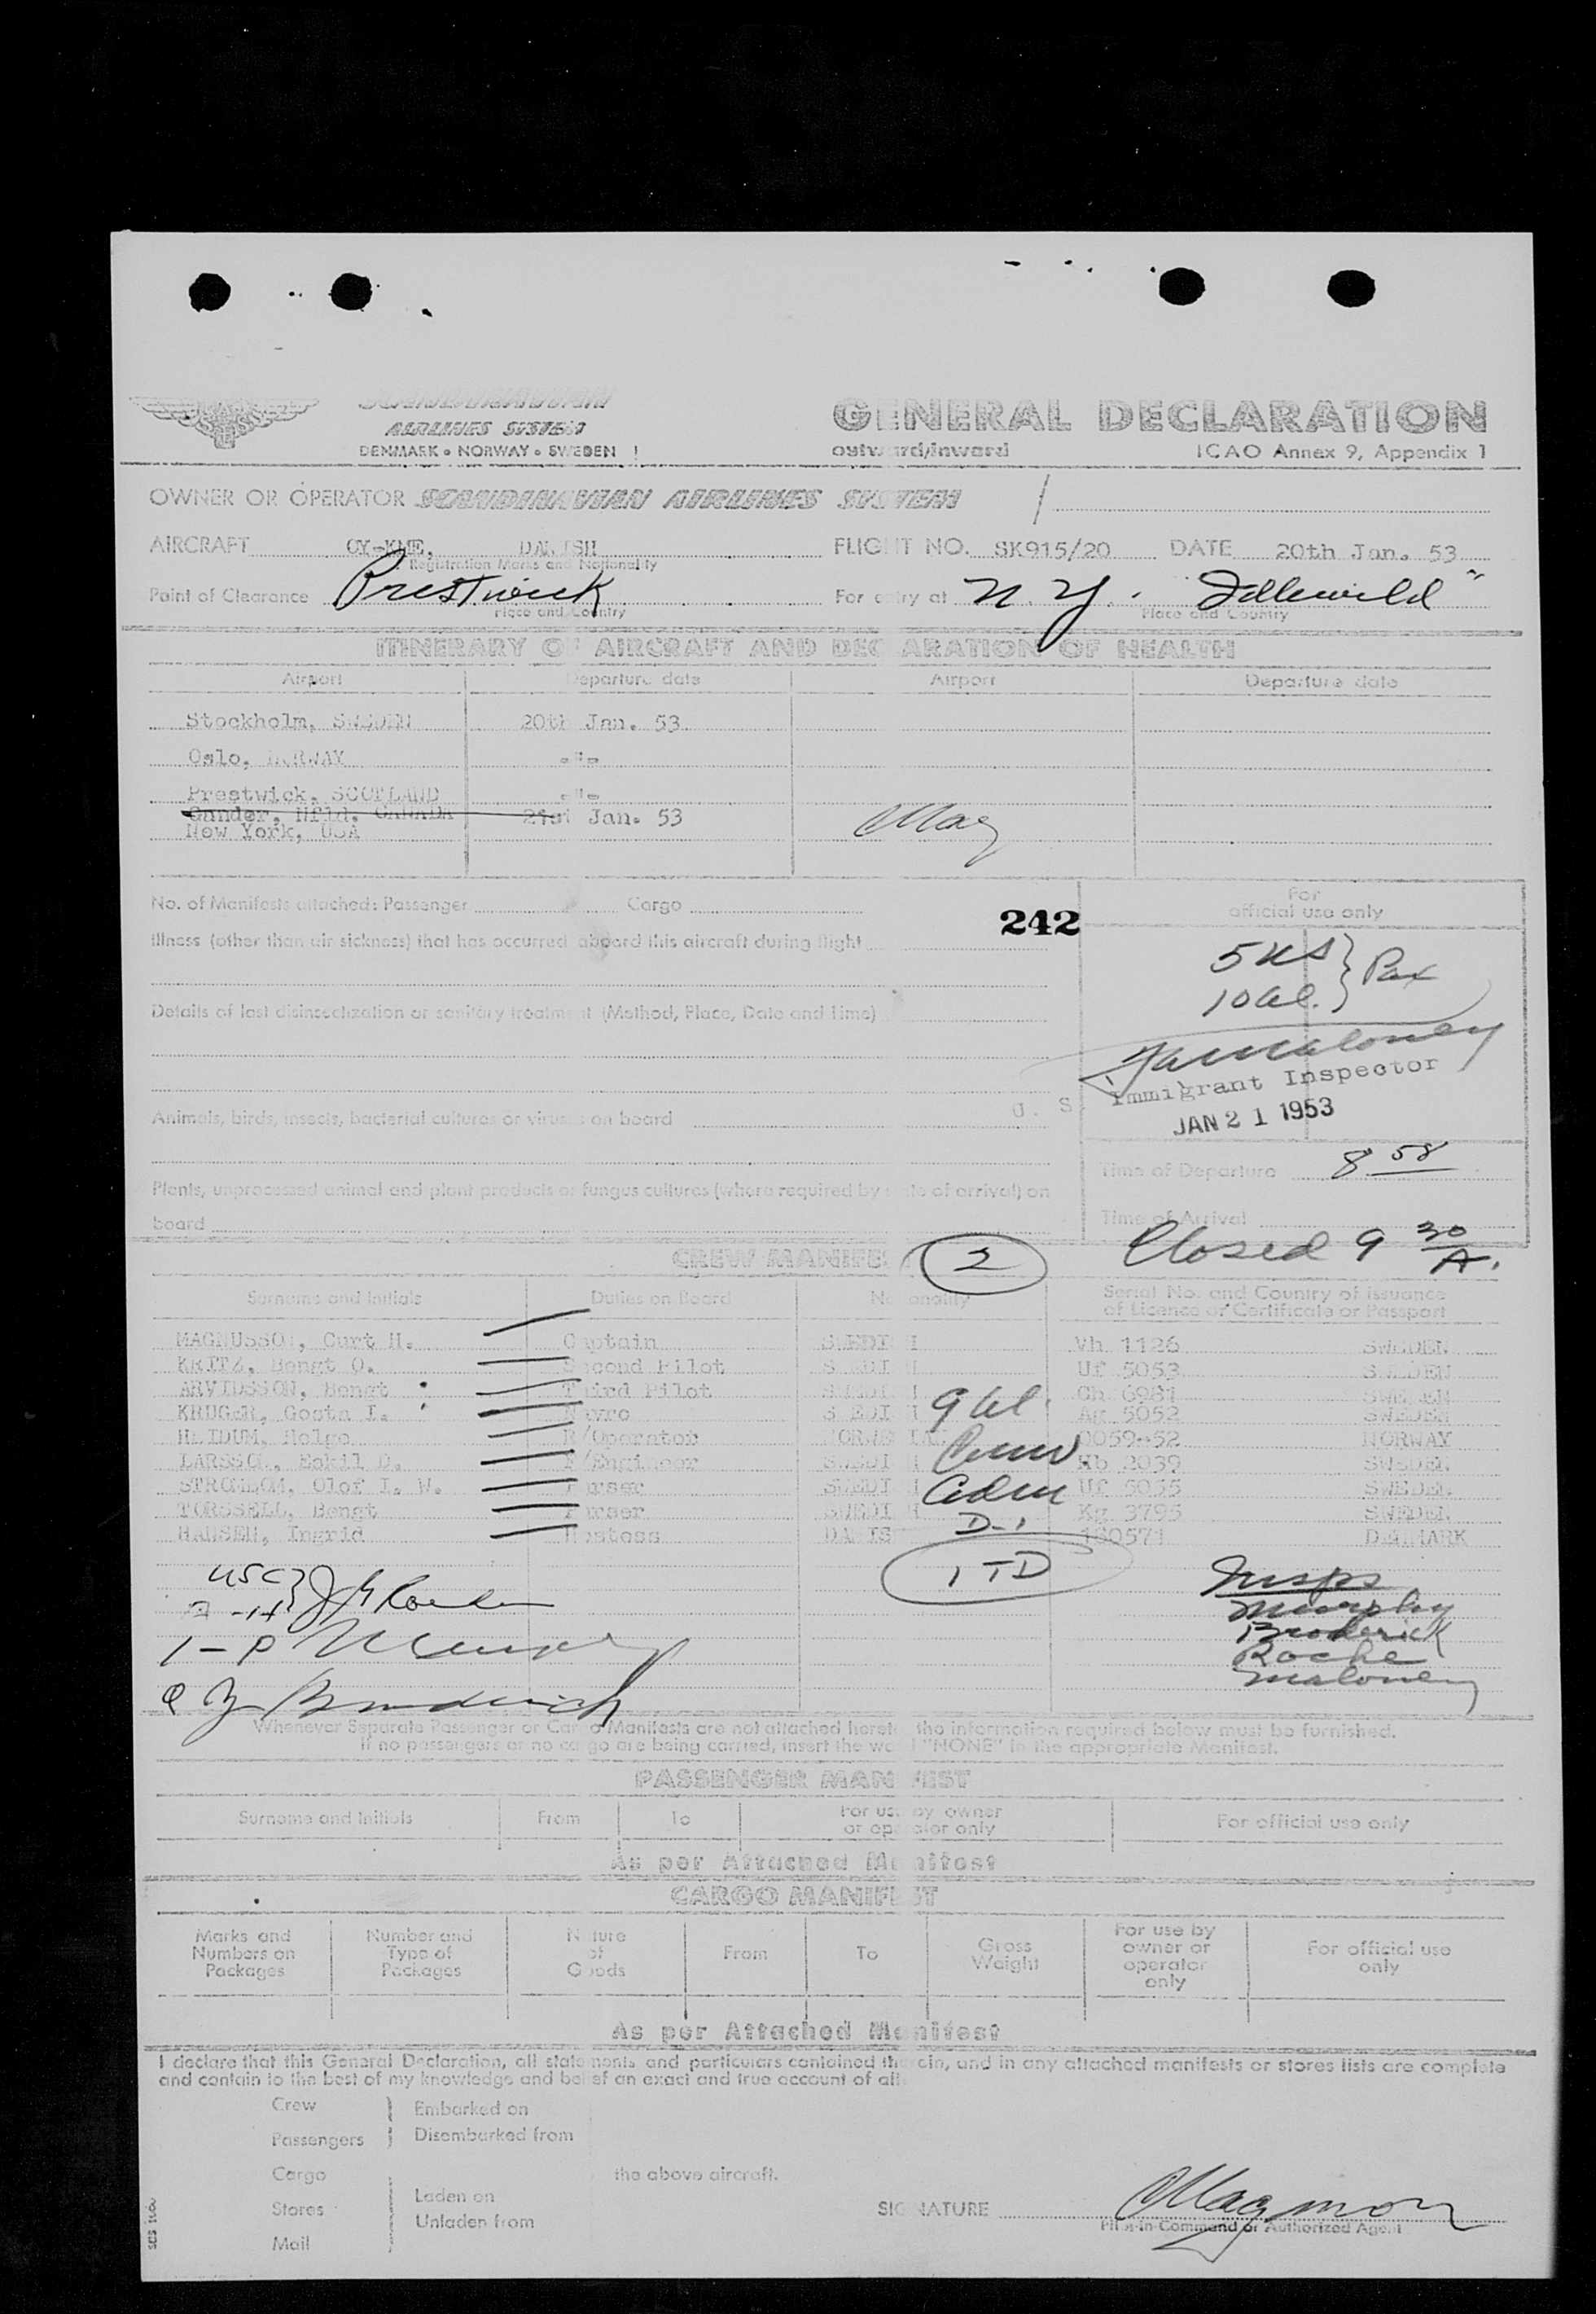 SCANDINAVIAN
AIRLINES SYSTEM
DENMARK • NORWAY • SWEDEN
GENERAL DECLARATION
outward/inward
ICAO Annex 9, Appendix 1
OWNER OR OPERATOR SCANDINAVIAN AIRLINES SYSTEM
AIRCRAFT OY-KME, DANISH FLIGHT NO. SK915/20 DATE 20th Jan. 53
Registration Marks and Nationality
Point of Clearance Prestwick For entry at N.Y. Idlewild"
Place and Country Place and Country
ITINERARY OF AIRCRAFT AND DECLARATION OF HEALTH
Airport Departure date Airport Departure date
Stockholm, SWEDEN 20th Jan. 53
Oslo, NORWAY -"-
Prestwick, SCOTLAND -"-
Gander, Nfld. CANADA 21st Jan. 53
New York, USA
Mag
No. of Manifests attached: Passenger Cargo
242
For
official use only
Illness (other than air sickness) that has occurred aboard this aircraft during flight
5 US } Pax
10 al.
Details of last disinsectization or sanitary treatment (Method, Place, Date and Time)
Maloney
U. S. Immigrant Inspector
JAN 21 1953
Animals, birds, insects, bacterial cultures or viruses on board
Time of Departure 8 58
Plants, unprocessed animal and plant products or fungus cultures (where required by state of arrival) on
board
Time of Arrival
Closed 9 30 A.
CREW MANIFEST
2
Surname and Initials Duties on Board Nationality Serial No. and Country of Issuance
of Licence or Certificate or Passport
MAGNUSSON, Curt H. Captain SWEDISH Vh 1126 SWEDEN
KRITZ, Bengt O. Second Pilot SWEDISH Uf 5053 SWEDEN
ARVIDSSON, Bengt Third Pilot SWEDISH Ch 6981 SWEDEN
KRUGER, Gosta I. Navro SWEDISH Ag 5052 SWEDEN
HEIDUM, Helge R/Operator NORWEGIAN 0059-52 NORWAY
LARSSON, Eskil D. F/Engineer SWEDISH Hb 2039 SWEDEN
STROMBOM, Olof I. W. Purser SWEDISH Uf 5035 SWEDEN
TORSSELL, Bengt Purser SWEDISH Kg 3795 SWEDEN
HANSEN, Ingrid Hostess DANISH 180571 DENMARK
9 al.
Crew
adm
D-1
1 TD
USC
1-P
Insps
Murphy
Broderick
Roche
Maloney
Broderick
Whenever Separate Passenger or Cargo Manifests are not attached hereto the information required below must be furnished.
If no passengers or no cargo are being carried, insert the word "NONE" in the appropriate Manifest.
PASSENGER MANIFEST
Surname and Initials From To For use by owner
or operator only For official use only
As per Attached Manifest
CARGO MANIFEST
Marks and
Numbers on
Packages
Number and
Type of
Packages
Nature
of
Goods
From
To
Gross
Weight
For use by
owner or
operator
only
For official use
only
As per Attached Manifest
I declare that this General Declaration, all statements and particulars contained therein, and in any attached manifests or stores lists are complete
and contain to the best of my knowledge and belief an exact and true account of all
Crew
Passengers
Embarked on
Disembarked from
Cargo
Stores
Mail
Laden on
Unladen from
the above aircraft.
SIGNATURE
Pilot-in-Command or Authorized Agent